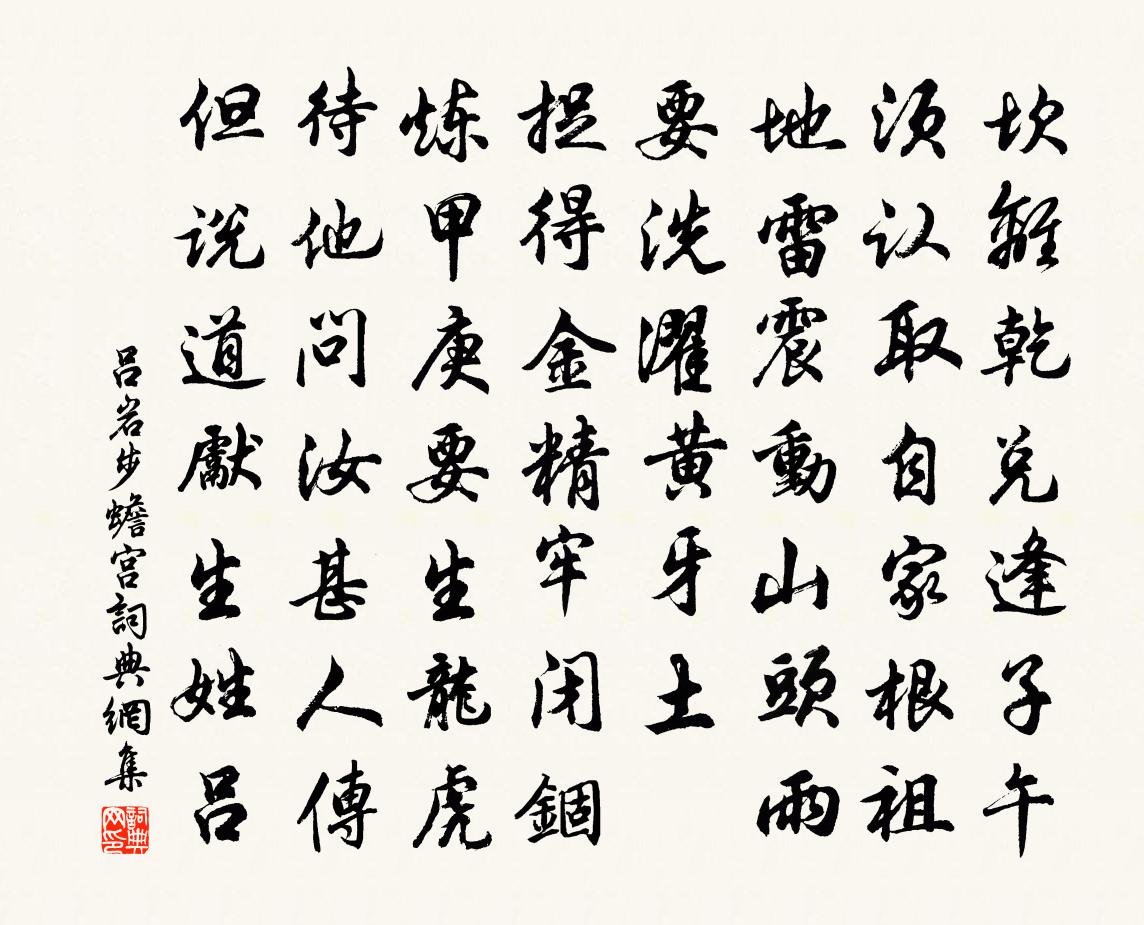 坎離乾兑逢子午
須认取自家根祖
地雷震動山頭雨
要洗濯黄牙土
捉得金精牢闭錮
炼甲庚要生龍虎
待他問汝甚人傳
但説道獻生姓吕
吕岩步蟾宫詞典網集
詞典网印